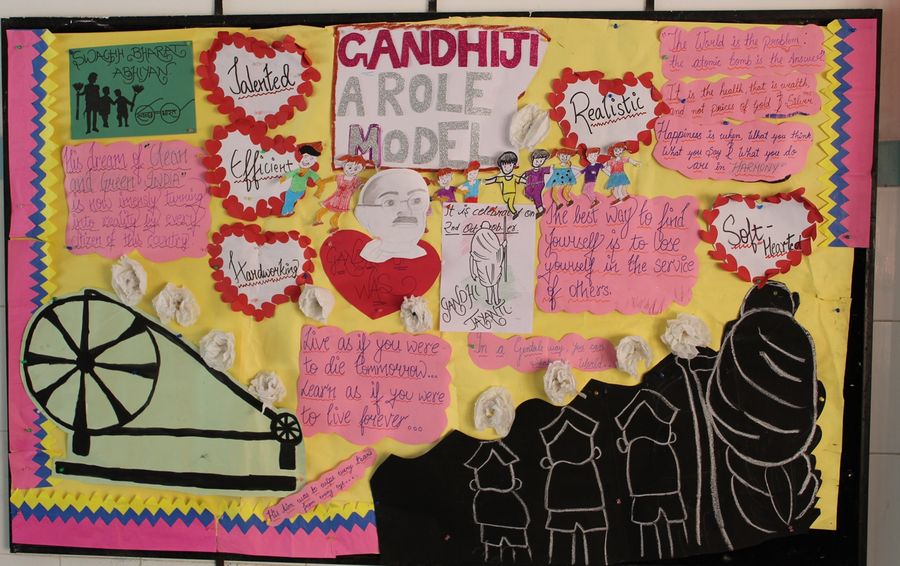 SWACHH BHARAT
ABHIYAN
स्वच्छ भारत
Talented
GANDHIJI
A ROLE
MODEL
Realistic
"The World is the Problem:
the atomic bomb is the Answer"
It is the health that is wealth,
and not peices of Gold & Silver
Happiness is when, What you think
What you Say & What you do
are in "HARMONY"
His dream of "Clean
and Green INDIA"
is now moving turning
into reality by every
citizen of this country!
Efficient
Hardworking
GANDHIJI
WAS
It is celebrated on
2nd October
GANDHI
JAYANTI
The best way to find
yourself is to lose
yourself in the service
of others.
Soft-
Hearted
Live as if you were
to die tommorrow...
Learn as if you were
to live forever...
In a Gentle way, You can
World
His aim was to wipe every tears
from every eye...